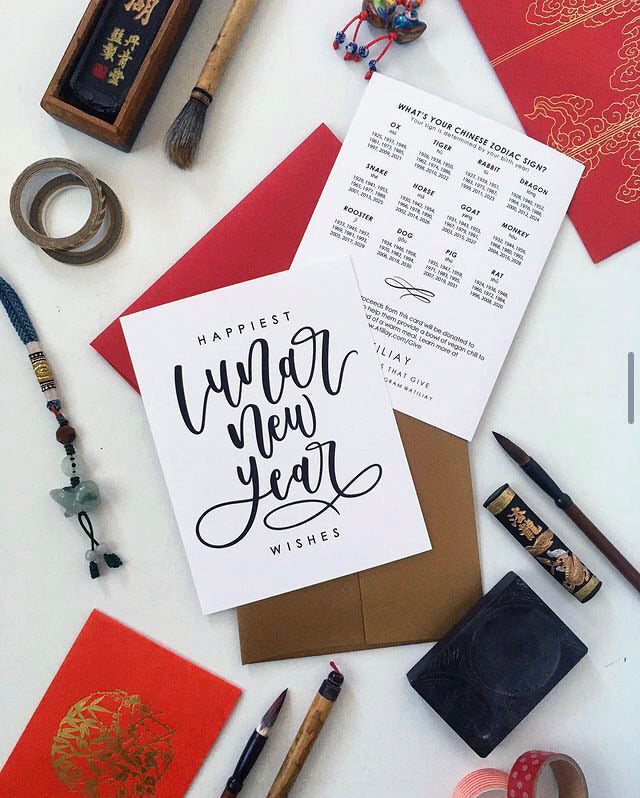 湖
丹青堂
監製
WHAT'S YOUR CHINESE ZODIAC SIGN?
Your sign is determined by your birth year!
OX
niú
1925, 1937, 1949,
1961, 1973, 1985,
1997, 2009, 2021
TIGER
hǔ
1926, 1938, 1950,
1962, 1974, 1986,
1998, 2010, 2022
RABBIT
tù
DRAGON
lóng
1928, 1940, 1952,
1964, 1976, 1988,
2000, 2012, 2024
SNAKE
shé
1929, 1941, 1953,
1965, 1977, 1989,
2001, 2013, 2025
HORSE
mǎ
1930, 1942, 1954,
1966, 1978, 1990,
2002, 2014, 2026
GOAT
yáng
1931, 1943, 1955,
1967, 1979, 1991,
2003, 2015, 2027
MONKEY
hóu
1932, 1944, 1956,
1968, 1980, 1992,
2004, 2016, 2028
ROOSTER
jī
1933, 1945, 1957,
1969, 1981, 1993,
2005, 2017, 2029
DOG
gǒu
1934, 1946, 1958,
1970, 1982, 1994,
2006, 2018, 2030
PIG
zhū
1935, 1947, 1959,
1971, 1983, 1995,
2007, 2019, 2031
RAT
shǔ
1924, 1936, 1948,
1960, 1972, 1984,
1996, 2008, 2020
roceeds from this card will be donated to
help them provide a bowl of vegan chili to
of a warm meal. Learn more at
.ATILIAY.com/Give
TILIAY
S THAT GIVE
GRAM @ATILIAY
HAPPIEST
lunar
new
year
WISHES